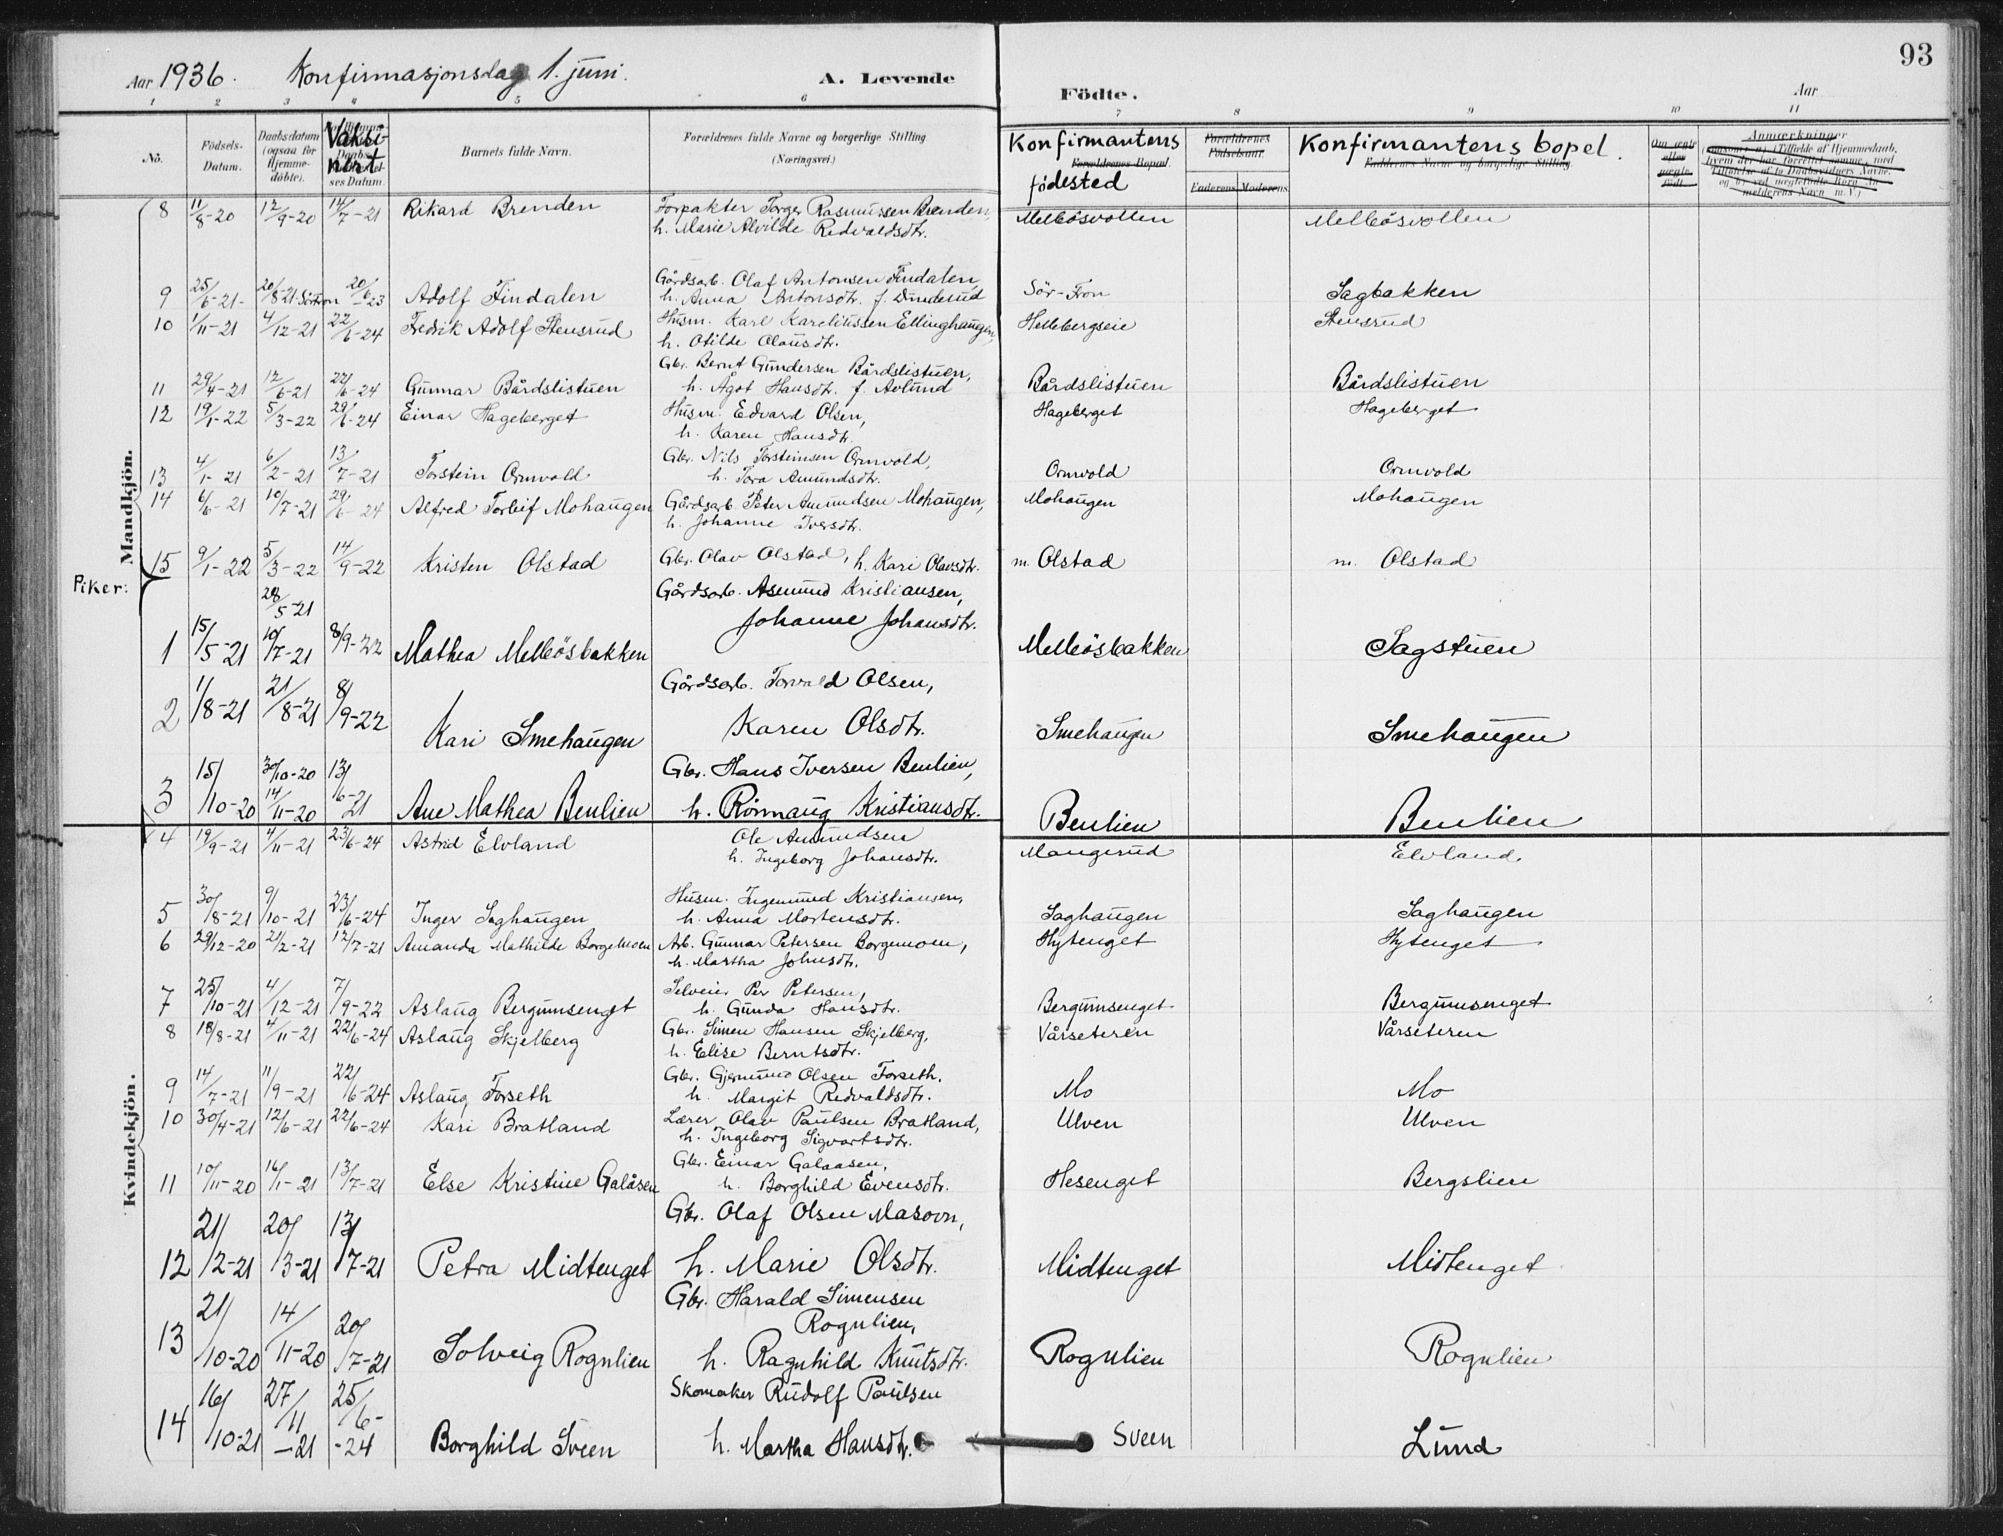 93
Aar 1936. Konfirmasjonsdag 1. juni. A. Levende Födte. Aar
1 2 3 4 5 6 7 8 9 10 11
No. Födsels-Datum. Daabsdatum (ogsaa for Hjemme-döbte). Vaksinert Barnets fulde Navn. Forældrenes fulde Navne og borgerlige Stilling (Næringsvei.) Konfirmantens födested Forældrenes Bopæl. Forældrenes Födselsaar. Faderens Moderens Konfirmantens bopel. Faddernes Navne og borgerlige Stilling Om ægte eller uægte födt. Anmærkninger
Mandkjön.
8 11/8-20 12/9-20 14/7-21 Rikard Brenden Forpakter Torger Rasmussen Brenden, Melbösvollen Melbösvollen
h. Marie Alvilde Redvaldsdtr.
9 25/6-21- 20/8-21 Sörfron 20/6-23 Adolf Findalen Gårdsarb. Olaf Antonsen Findalen, Sör-Fron Sagbakken
h. Anna Antonsdtr. f. Dinderud
10 1/11-21 4/12-21 22/6-24 Fredrik Adolf Stensrud Husm. Karl Karelitussen Ellinghaugen, Hellebergseie Stensrud
h. Otilde Olausdtr.
11 29/4-21 12/6-21 22/6-24 Gunnar Bårdslistuen Gbr. Bernt Gundersen Bårdslistuen, Bårdslistuen Bårdslistuen
h. Ågot Hansdtr. f. Avlund
12 19/1-22 5/3-22 29/6-24 Einar Hageberget Husm. Edvard Olsen, Hageberget Hageberget
h. Karen Hansdtr.
13 4/1-21 6/2-21 13/7-21 Torstein Ormvold Gbr. Nils Torsteinsen Ormvold, Ormvold Ormvold
h. Tora Amundsdtr.
14 6/6-21 10/7-21 29/6-24 Alfred Torleif Mohaugen Gårdsarb. Peter Amundsen Mohaugen, Mohaugen Mohaugen
h. Johanne Iversdtr.
15 9/1-22 5/3-22 14/9-22 Kristen Olstad Gbr. Olav Olstad, h. Kari Olavsdtr. m. Olstad m. Olstad
Piker:
28/5-21 Gårdsarb. Asmund Kristiansen,
1 15/5-21 10/7-21 8/9-22 Mathea Melbösbakken Johanne Johansdtr. Melbösbakken Sagstuen
2 1/8-21 21/8-21 8/9-22 Kari Smehaugen Gårdsarb. Torvald Olsen, Smehaugen Smehaugen
Karen Olsdtr.
30/10-20 Gbr. Hans Iversen Benlien,
3 15/10-20 14/11-20 13/6-21 Ane Mathea Benlien h. Rönnaug Kristiansdtr. Benlien Benlien
Kvindekjön.
4 19/9-21 4/11-21 23/6-24 Astrid Elvland Ole Amundsen Mangerud Elvland
h. Ingeborg Johansdtr.
5 30/8-21 9/10-21 23/6-24 Inger Saghaugen Husm. Ingemund Kristiansen, Saghaugen Saghaugen
h. Anna Mortensdtr.
6 29/12-20 21/2-21 12/7-21 Amanda Mathilde Borgemoen Arb. Gunnar Petersen Borgemoen, Hytenget Hytenget
h. Martha Johnsdtr.
7 25/10-21 4/12-21 7/9-22 Aslaug Bergumsenget Selveier Per Petersen, Bergumsenget Bergumsenget
h. Gunda Hansdtr.
8 18/8-21 4/11-21 22/6-24 Aslaug Skjelberg Gbr. Simen Hansen Skjelberg, Vårseteren Vårseteren
h. Elise Berntsdtr.
9 14/7-21 11/9-21 22/6-24 Aslaug Forseth Gbr. Gjermund Olsen Forseth. Mo Mo
h. Margit Redvaldsdtr.
10 30/4-21 12/6-21 22/6-24 Kari Bratland Lærer Olav Paulsen Bratland, Ulven Ulven
h. Ingeborg Sigvartsdtr.
11 10/11-20 16/1-21 13/7-21 Else Kristine Galåsen Gbr. Einar Galaasen, Hesenget Bergslien
h. Borghild Evensdtr.
12 21/12-21 20/3-21 13/7-21 Petra Midtenget Gbr. Olaf Olsen Masovn, Midtenget Midtenget
h. Marie Olsdtr.
13 21/10-20 14/11-20 20/7-21 Solveig Rognlien Gbr. Harald Simensen Rognlien, Rognlien Rognlien
h. Ragnhild Knutsdtr.
14 16/10-21 27/11-21 25/6-24 Borghild Sveen Skomaker Rudolf Paulsen Sveen Lund
h. Martha Hansdtr.